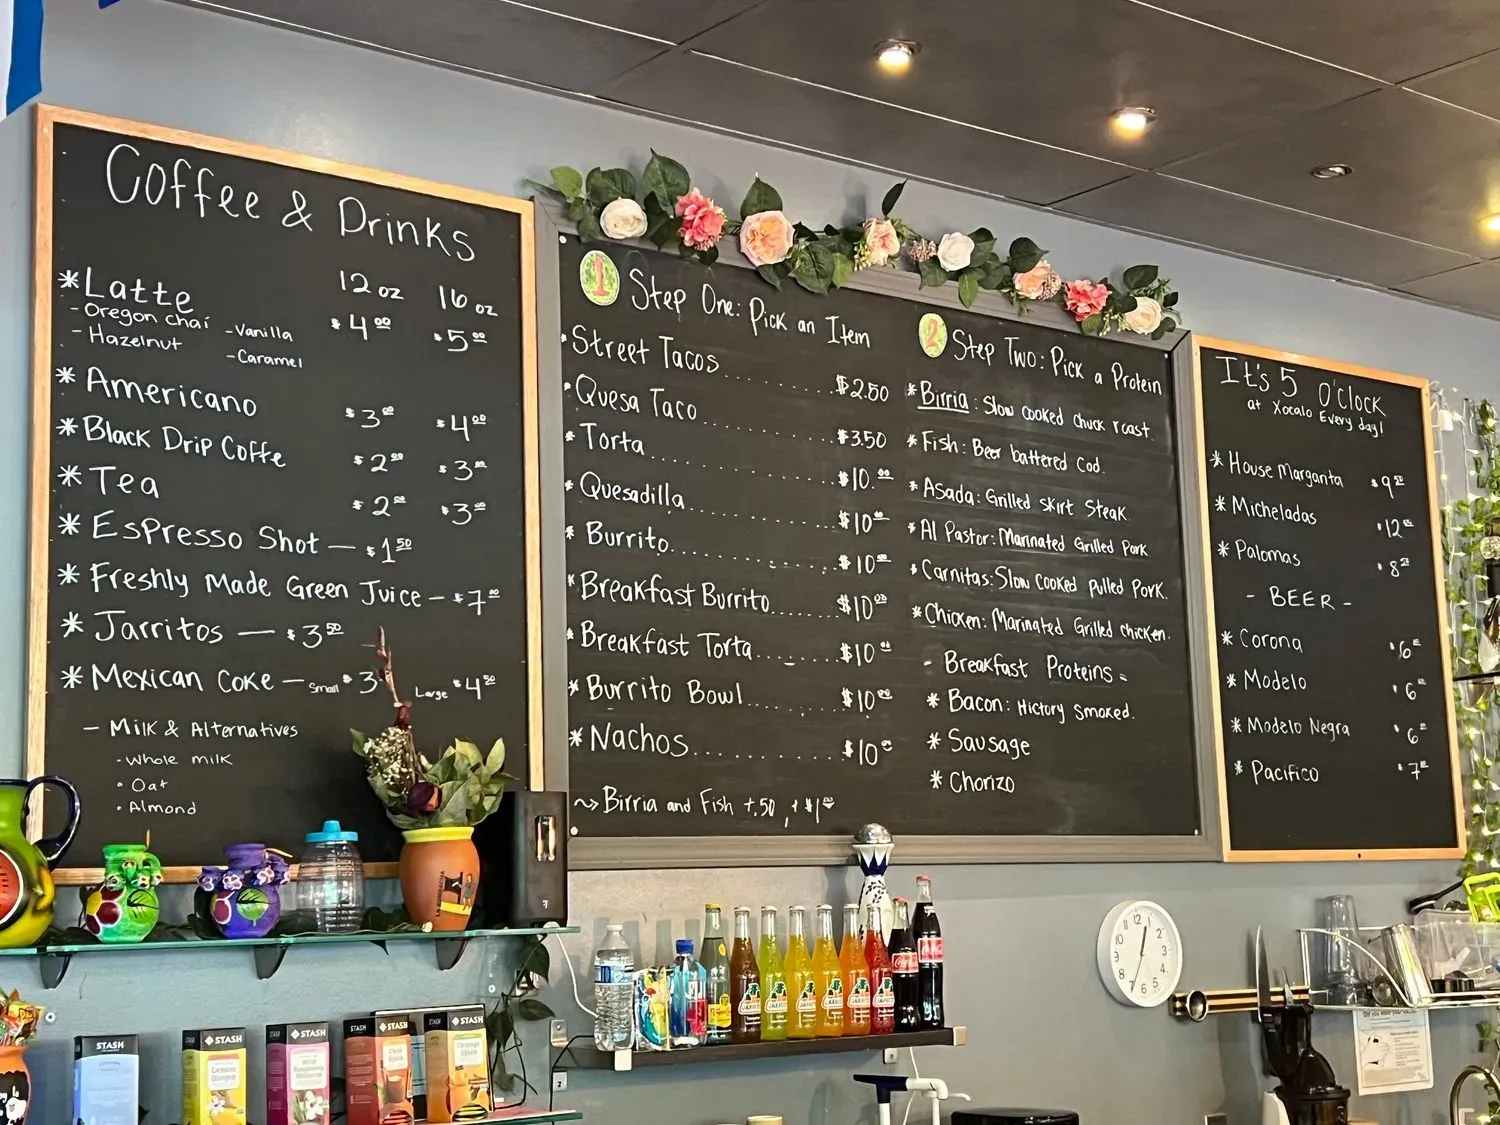 Coffee & Drinks
12 oz 16 oz
* Latte $4.00 $5.00
- Oregon chai - Vanilla
- Hazelnut - Caramel
* Americano $3.00 $4.00
* Black Drip Coffe $2.00 $3.00
* Tea $2.00 $3.00
* Espresso Shot — $1.50
* Freshly Made Green Juice — $7.00
* Jarritos — $3.50
* Mexican Coke — Small $3 Large $4.50
- Milk & Alternatives
· Whole milk
· Oat
· Almond
1 Step One: Pick an Item
* Street Tacos........$2.50
* Quesa Taco........$3.50
* Torta........$10.00
* Quesadilla........$10.00
* Burrito........$10.00
* Breakfast Burrito......$10.00
* Breakfast Torta.......$10.00
* Burrito Bowl........$10.00
* Nachos........$10.00
~> Birria and Fish +.50, + $1.00
2 Step Two: Pick a Protein
* Birria: Slow cooked chuck roast.
* Fish: Beer battered Cod.
* Asada: Grilled Skirt Steak.
* Al Pastor: Marinated Grilled Pork
* Carnitas: Slow cooked Pulled Pork.
* Chicken: Marinated Grilled chicken.
- Breakfast Proteins -
* Bacon: Hictory Smoked.
* Sausage
* Chorizo
It's 5 O'Clock
at Xocalo Every day!
* House Margarita $9
* Micheladas $12
* Palomas $8
- BEER -
* Corona $6
* Modelo $6
* Modelo Negra $6
* Pacifico $7
STASH
STASH
Lemon Ginger
STASH
Wild Raspberry
STASH
Chai Spice
STASH
Orange Spice
JARRITOS
JARRITOS
JARRITOS
JARRITOS
JARRITOS
JARRITOS
Coca-Cola
Coca-Cola
12 1 2 3 4 5 6 7 8 9 10 11